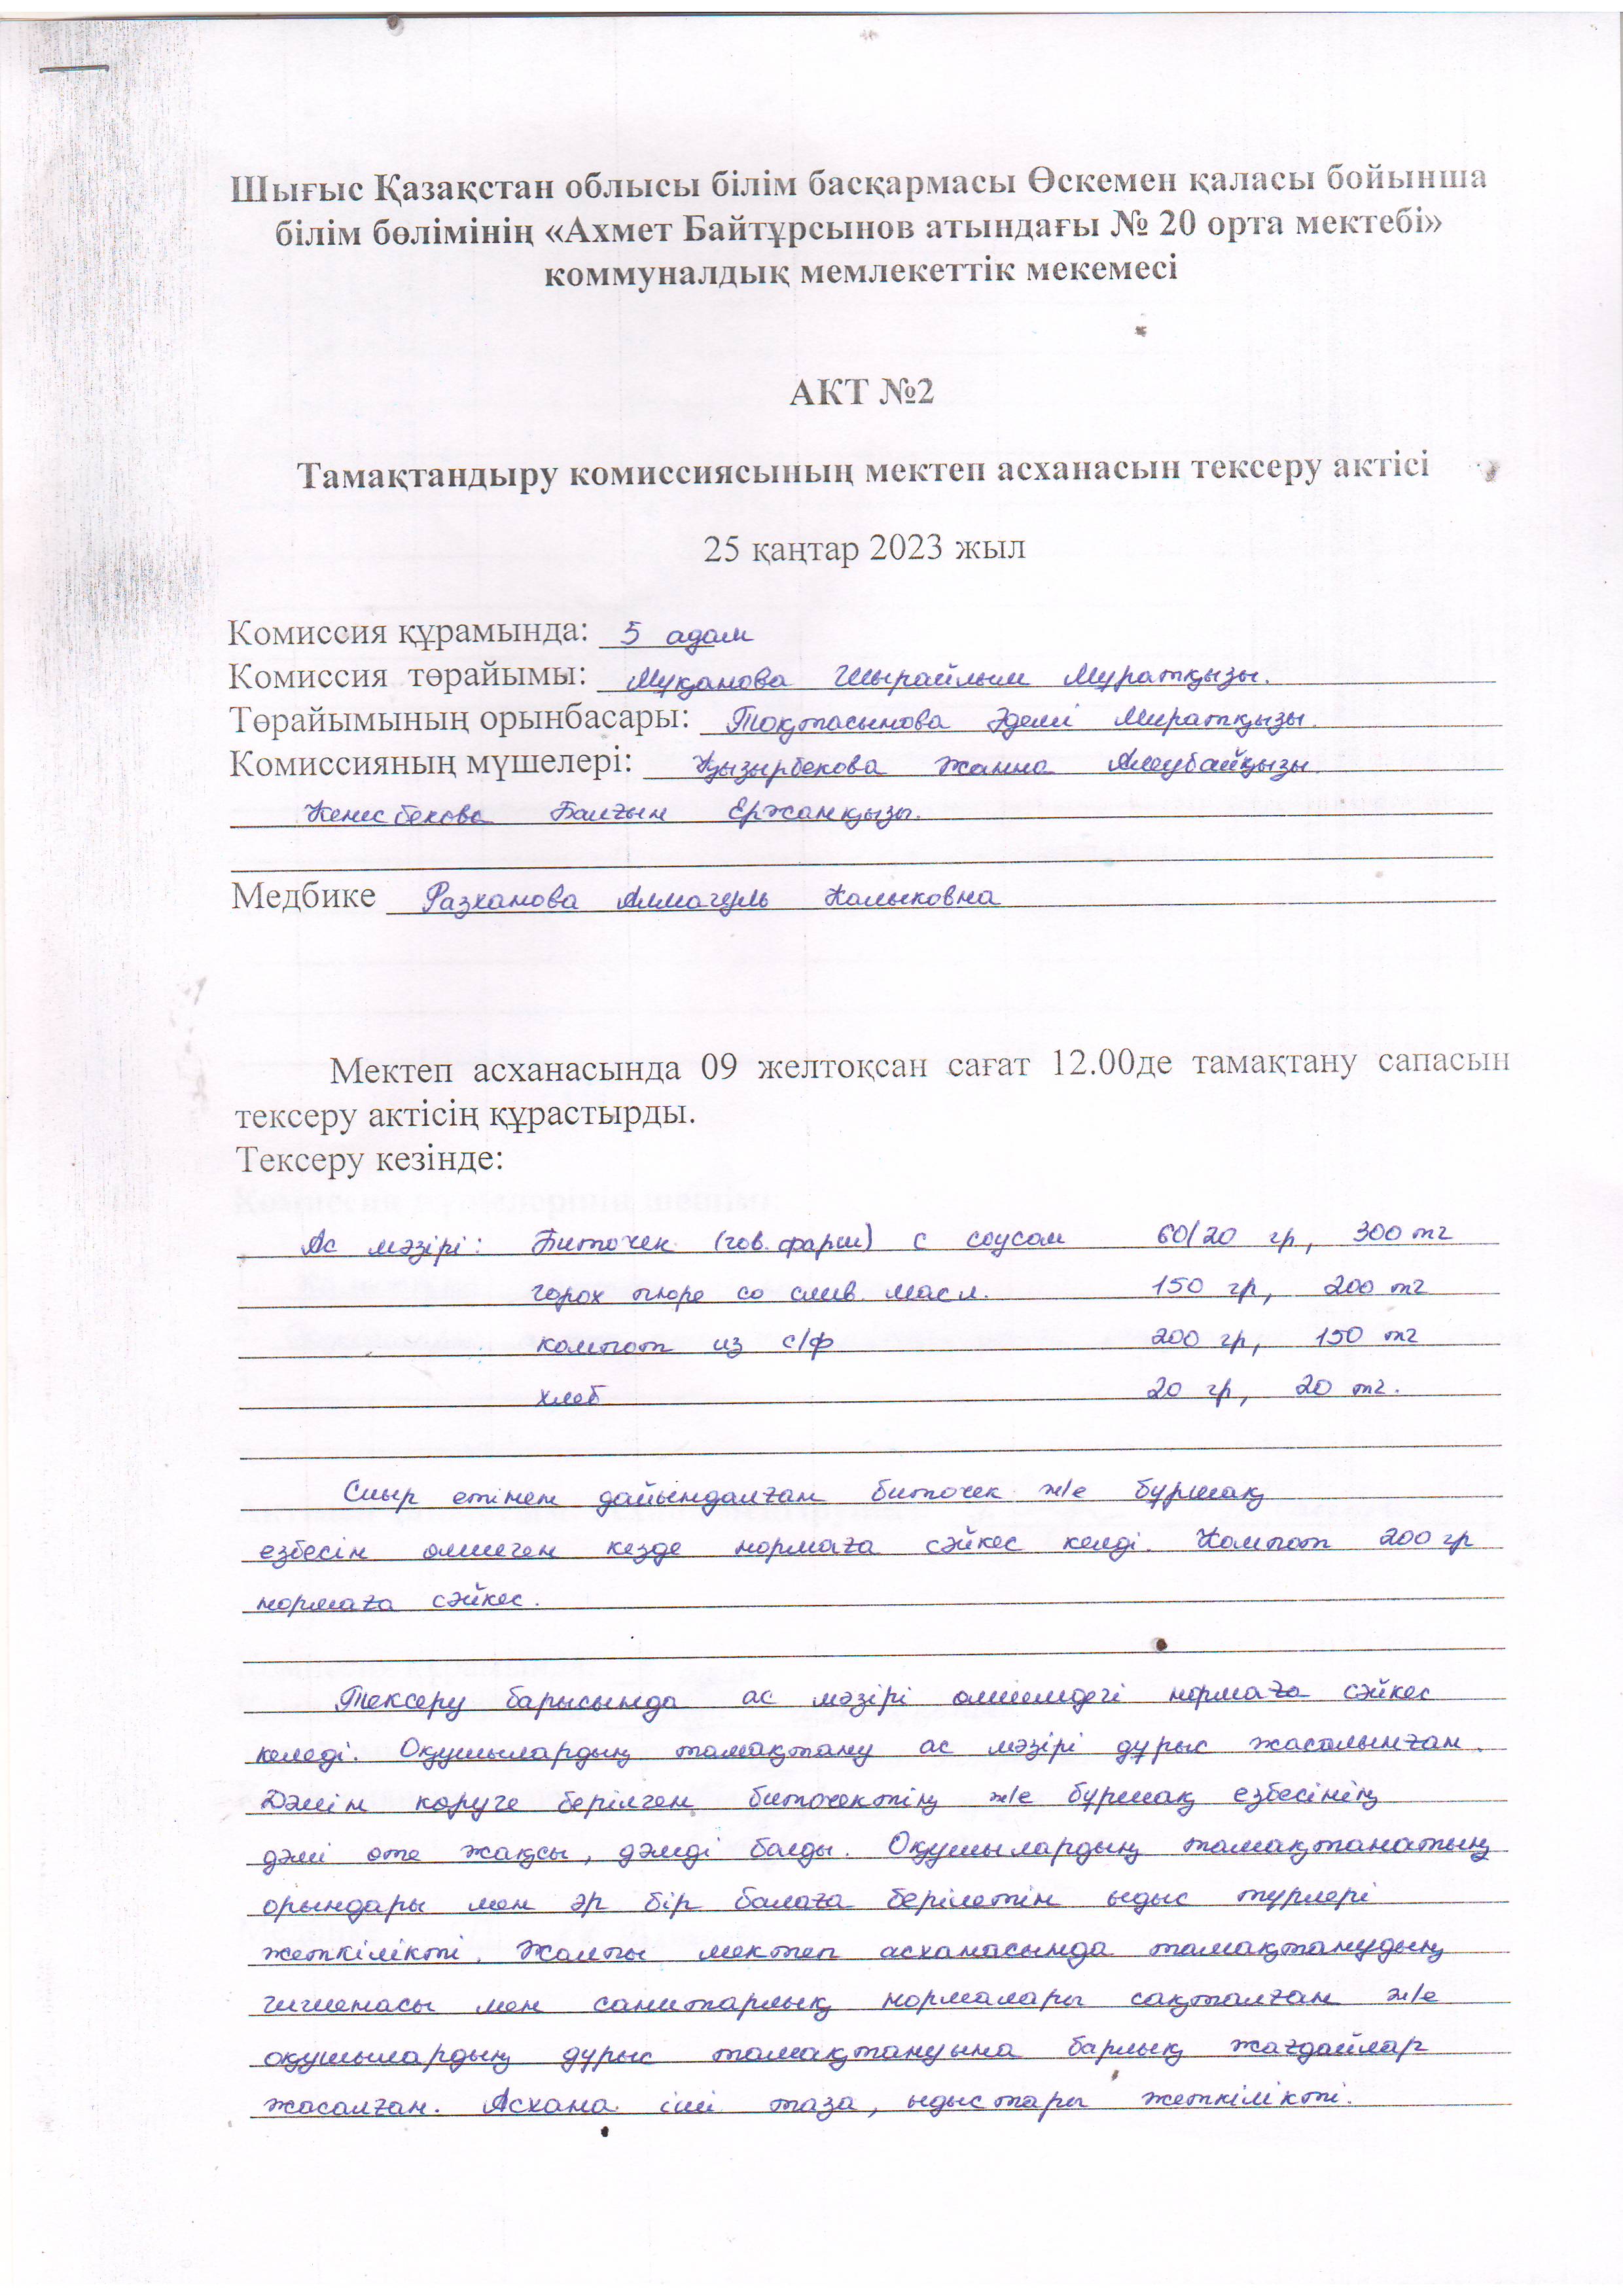 Шығыс Қазақстан облысы білім басқармасы Өскемен қаласы бойынша
білім бөлімінің «Ахмет Байтұрсынов атындағы № 20 орта мектебі»
коммуналдық мемлекеттік мекемесі
АКТ №2
Тамақтандыру комиссиясының мектеп асханасын тексеру актісі
25 қаңтар 2023 жыл
Комиссия құрамында: 5 адам
Комиссия төрайымы: Муқанова Шырайлым Муратқызы.
Төрайымының орынбасары: Тоқтасынова Әдемі Миратқызы.
Комиссияның мүшелері: Қызырбекова Жанна Алеубайқызы
Кенесбекова Балғын Ержанқызы.
Медбике Разханова Алмагуль Калыковна
Мектеп асханасында 09 желтоқсан сағат 12.00де тамақтану сапасын
тексеру актісің құрастырды.
Тексеру кезінде:
Ас мәзірі: Биточек (гов. фарш) с соусом 60/20 гр, 300 тг
горох пюре со слив. масл. 150 гр, 200 тг
компот из с/ф 200 гр, 150 тг
хлеб 20 гр, 20 тг.
Сиыр етінен дайындалған биточек ж/е бұршақ
езбесін өлшеген кезде нормаға сәйкес келді. Компот 200 гр
нормаға сәйкес.
Тексеру барысында ас мәзірі өлшемдегі нормаға сәйкес
келеді. Оқушылардың тамақтану ас мәзірі дұрыс жасалынған.
Дәмін көруге берілген биточектің ж/е бұршақ езбесінің
дәмі өте жақсы, дәмді болды. Оқушылардың тамақтанатың
орындары мен әр бір балаға берілетін ыдыс түрлері
жеткілікті. Жалпы мектеп асханасында тамақтанудың
гигиенасы мен санитарлық нормалары сақталған ж/е
оқушылардың дұрыс тамақтануына барлық жағдайлар
жасалған. Асхана іші таза, ыдыстары жеткілікті.